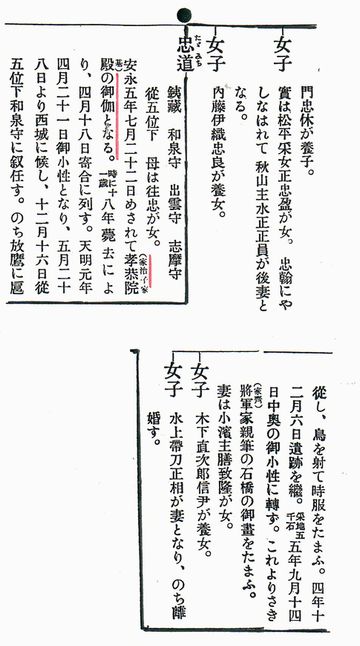 門忠休が養子。
女子
實は松平采女正忠盈が女。忠翰にや
しなはれて秋山主水正正員が後妻と
なる。
女子
内藤伊織忠良が養女。
忠道
たゞみち
鉄藏 和泉守 出雲守 志摩守
從五位下 母は往忠が女。
安永五年七月二十二日めされて孝恭院
(家治子家
基)
殿の御伽となる。時に十一歳八年薨去によ
り、四月十八日寄合に列す。天明元年
四月二十一日御小性となり、五月二十
八日より西城に候し、十二月十六日從
五位下和泉守に叙任す。のち放鷹に扈
從し、鳥を射て時服をたまふ。四年十
二月六日遺跡を繼。采地五千石五年九月十四
日中奥の御小性に轉ず。これよりさき
(家齊)
將軍家親筆の石橋の御畫をたまふ。
妻は小濱主膳致隆が女。
女子
木下直次郎信尹が養女。
女子
水上帶刀正相が妻となり、のち離
婚す。